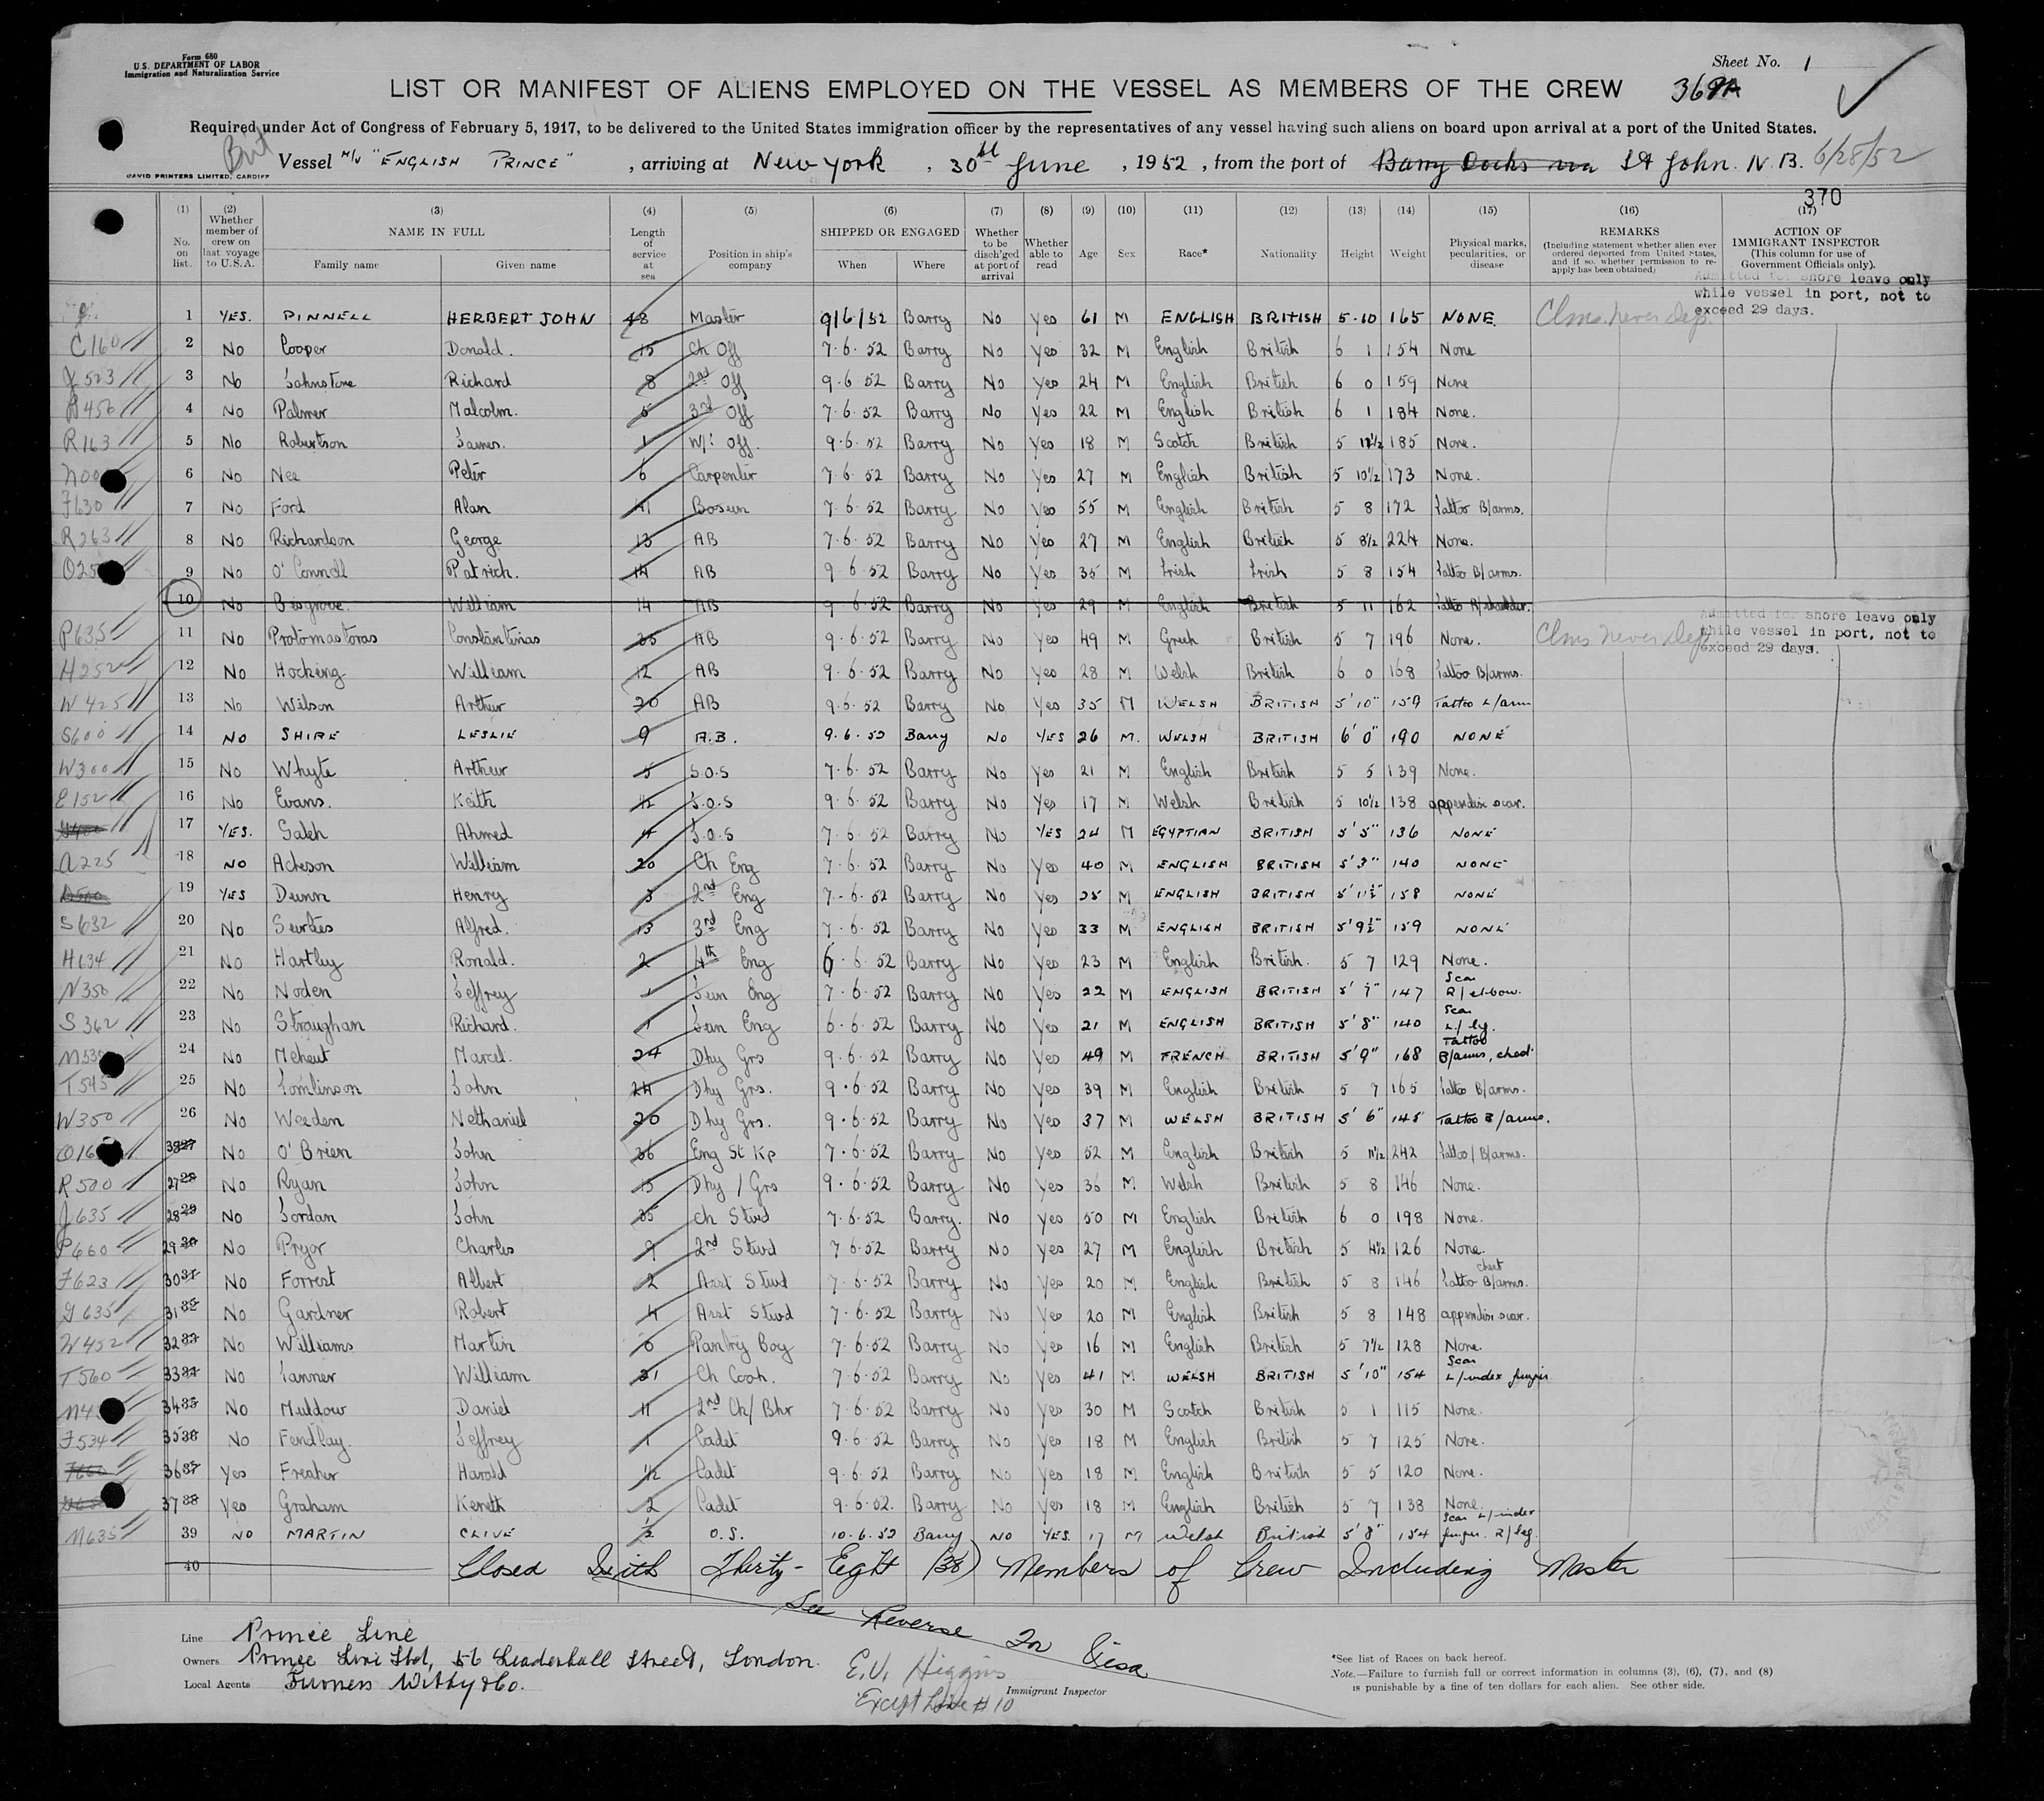 Form 680
U.S. DEPARTMENT OF LABOR
Immigration and Naturalization Service
Sheet No. 1
LIST OR MANIFEST OF ALIENS EMPLOYED ON THE VESSEL AS MEMBERS OF THE CREW 369A
Required under Act of Congress of February 5, 1917, to be delivered to the United States immigration officer by the representatives of any vessel having such aliens on board upon arrival at a port of the United States.
Brit Vessel M/V "ENGLISH PRINCE", arriving at New York, 30th June, 1952, from the port of Barry Docks St John. N.B. 6/28/52
DAVID PRINTERS LIMITED, CARDIFF
370
(1) No. on list. (2) Whether member of crew on last voyage to U.S.A. (3) NAME IN FULL Family name Given name (4) Length of service at sea (5) Position in ship's company (6) SHIPPED OR ENGAGED When Where (7) Whether to be disch'ged at port of arrival (8) Whether able to read (9) Age (10) Sex (11) Race* (12) Nationality (13) Height (14) Weight (15) Physical marks, pecularities, or disease (16) REMARKS (Including statement whether alien ever ordered deported from United States, and if so, whether permission to re-apply has been obtained) (17) ACTION OF IMMIGRANT INSPECTOR (This column for use of Government Officials only).
Admitted for shore leave only
while vessel in port, not to
exceed 29 days.
1 YES. PINNELL HERBERT JOHN 48 Master 9/6/52 Barry No Yes 61 M ENGLISH BRITISH 5-10 165 NONE. Clms never dep.
C160 2 No Cooper Donald. 15 Ch Off 7.6.52 Barry No Yes 32 M English British 6 1 154 None
J523 3 No Johnstone Richard 8 2nd Off 9.6.52 Barry No Yes 24 M English British 6 0 159 None
P456 4 No Palmer Malcolm. 5 3rd Off 7.6.52 Barry No Yes 22 M English British 6 1 184 None.
R163 5 No Robertson James. 1 W/: Off. 9.6.52 Barry No Yes 18 M Scotch British 5 185 None.
6 No Nee Peter 6 Carpenter 7.6.52 Barry No Yes 27 M English British 5 10½ 173 None.
F630 7 No Ford Alan 41 Bosun 7.6.52 Barry No Yes 55 M English British 5 8 172 Tattoo B/arms.
R263 8 No Richardson George 13 AB 7.6.52 Barry No Yes 27 M English British 5 8½ 224 None.
O25 9 No O'Connell Patrick. 14 AB 9.6.52 Barry No Yes 35 M Irish Irish 5 8 154 Tattoo B/arms.
10 No Bisgrove. William 14 AB 9.6.52 Barry No Yes 29 M English British 5 11 162 Tattoo R/shoulder.
Admitted for shore leave only
while vessel in port, not to
exceed 29 days.
P635 11 No Protomastoras Constantinas 35 AB 9.6.52 Barry No Yes 49 M Greek British 5 7 196 None. Clms never dep
H252 12 No Hocking William 12 AB 9.6.52 Barry No Yes 28 M Welsh British 6 0 168 Tattoo B/arms.
W425 13 No Wilson Arthur 20 AB 9.6.52 Barry No Yes 35 M WELSH BRITISH 5'10" 159 Tattoo L/arm
S600 14 NO SHIRE LESLIE 9 A.B. 9.6.52 Barry NO YES 26 M. WELSH BRITISH 6'0" 190 NONE
W300 15 No Whyte Arthur 5 S.O.S 7.6.52 Barry No Yes 21 M English British 5 5 139 None.
E152 16 No Evans. Keith J.O.S 9.6.52 Barry No Yes 17 M Welsh British 5 10½ 138 appendix scar.
17 YES. Saleh Ahmed 4 J.O.S 7.6.52 Barry No YES 24 M EGYPTIAN BRITISH 5'5" 136 NONE
A225 18 NO Acheson William 20 Ch Eng 7.6.52 Barry No Yes 40 M ENGLISH BRITISH 5'3" 140 NONE
D500 19 YES Dunn Henry 3 2nd Eng 7.6.52 Barry No Yes 25 M ENGLISH BRITISH 5'11½" 158 NONE
S632 20 No Surtees Alfred. 13 3rd Eng 7.6.52 Barry No Yes 33 M ENGLISH BRITISH 5'9½" 159 NONE
H634 21 No Hartley Ronald. 2 4th Eng 6.6.52 Barry No Yes 23 M English British. 5 7 129 None.
N350 22 No Noden Jeffrey 1 Jun Eng 7.6.52 Barry No Yes 22 M ENGLISH BRITISH 5'7" 147 Scar R/elbow.
S362 23 No Straughan Richard. 1 Jun Eng 6.6.52 Barry No Yes 21 M ENGLISH BRITISH 5'8" 140 Scar L/leg.
M530 24 No Meheut Marcel. 24 Dky Grs 9.6.52 Barry No Yes 49 M FRENCH BRITISH 5'9" 168 Tattoo B/arms, chest
T545 25 No Tomlinson John 24 Dky Grs. 9.6.52 Barry No Yes 39 M English British 5 7 165 Tattoo B/arms.
W350 26 No Weeden Nethaniel 20 Dky Grs. 9.6.52 Barry No Yes 37 M WELSH BRITISH 5'6" 145 Tattoo B/arms.
O16 38 27 No O'Brien John 36 Eng St Kp 7.6.52 Barry No Yes 52 M English British 5 11½ 242 Tattoo/B/arms.
R500 27 28 No Ryan John 15 Dky/Grs 9.6.52 Barry No Yes 36 M Welsh British 5 8 146 None.
J635 28 29 No Jordan John 35 Ch Stwd 7.6.52 Barry. No Yes 50 M English British 6 0 198 None.
P660 29 30 No Pryor Charles 9 2nd Stwd 7.6.52 Barry No Yes 27 M English British 5 4½ 126 None.
F623 30 31 No Forrest Albert 2 Asst Stwd 7.6.52 Barry No Yes 20 M English British 5 8 146 Tattoo chest B/arms.
G635 31 32 No Gardner Robert 4 Asst Stwd 7.6.52 Barry No Yes 20 M English British 5 8 148 appendix scar.
W452 32 33 No Williams Martin 0 Pantry Boy 7.6.52 Barry No Yes 16 M English British 5 7½ 128 None.
T560 33 34 No Tanner William 21 Ch Cook. 7.6.52 Barry No Yes 41 M WELSH BRITISH 5'10" 154 Scar L/index finger
34 35 No Muldow Daniel 11 2nd Ck/Bkr 7.6.52 Barry No Yes 30 M Scotch British 5 1 115 None.
F534 35 36 No Fendlay. Jeffrey 1 Cadet 9.6.52 Barry No Yes 18 M English British 5 7 125 None.
36 37 Yes Freaker Harold 1/2 Cadet 9.6.52 Barry No Yes 18 M English British 5 5 120 None.
37 38 Yes Graham Keneth 2 Cadet 9.6.52. Barry No Yes 18 M English British 5 7 138 None.
M635 39 NO MARTIN CLIVE ½ O.S. 10.6.52 Barry NO YES. 17 M Welsh British 5'8" 154 Scar L/index finger. R/leg.
40 Closed With Thirty-Eight (38) Members of Crew Including Master
See Reverse For Visa
Line Prince Line
Owners Prince Line Ltd, 56 Leadenhall Street, London.
Local Agents Furness Withy & Co.
E.V. Higgins
Immigrant Inspector
Except Line #10
*See list of Races on back hereof.
Note.—Failure to furnish full or correct information in columns (3), (6), (7), and (8)
is punishable by a fine of ten dollars for each alien. See other side.